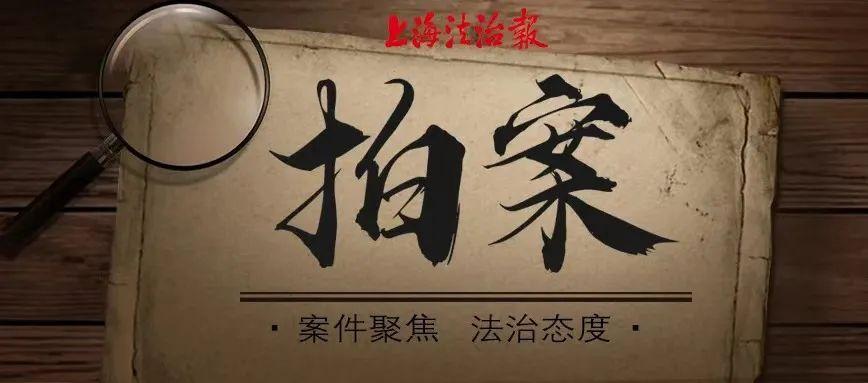 上海法治報
拍案
· 案件聚焦 法治态度 ·